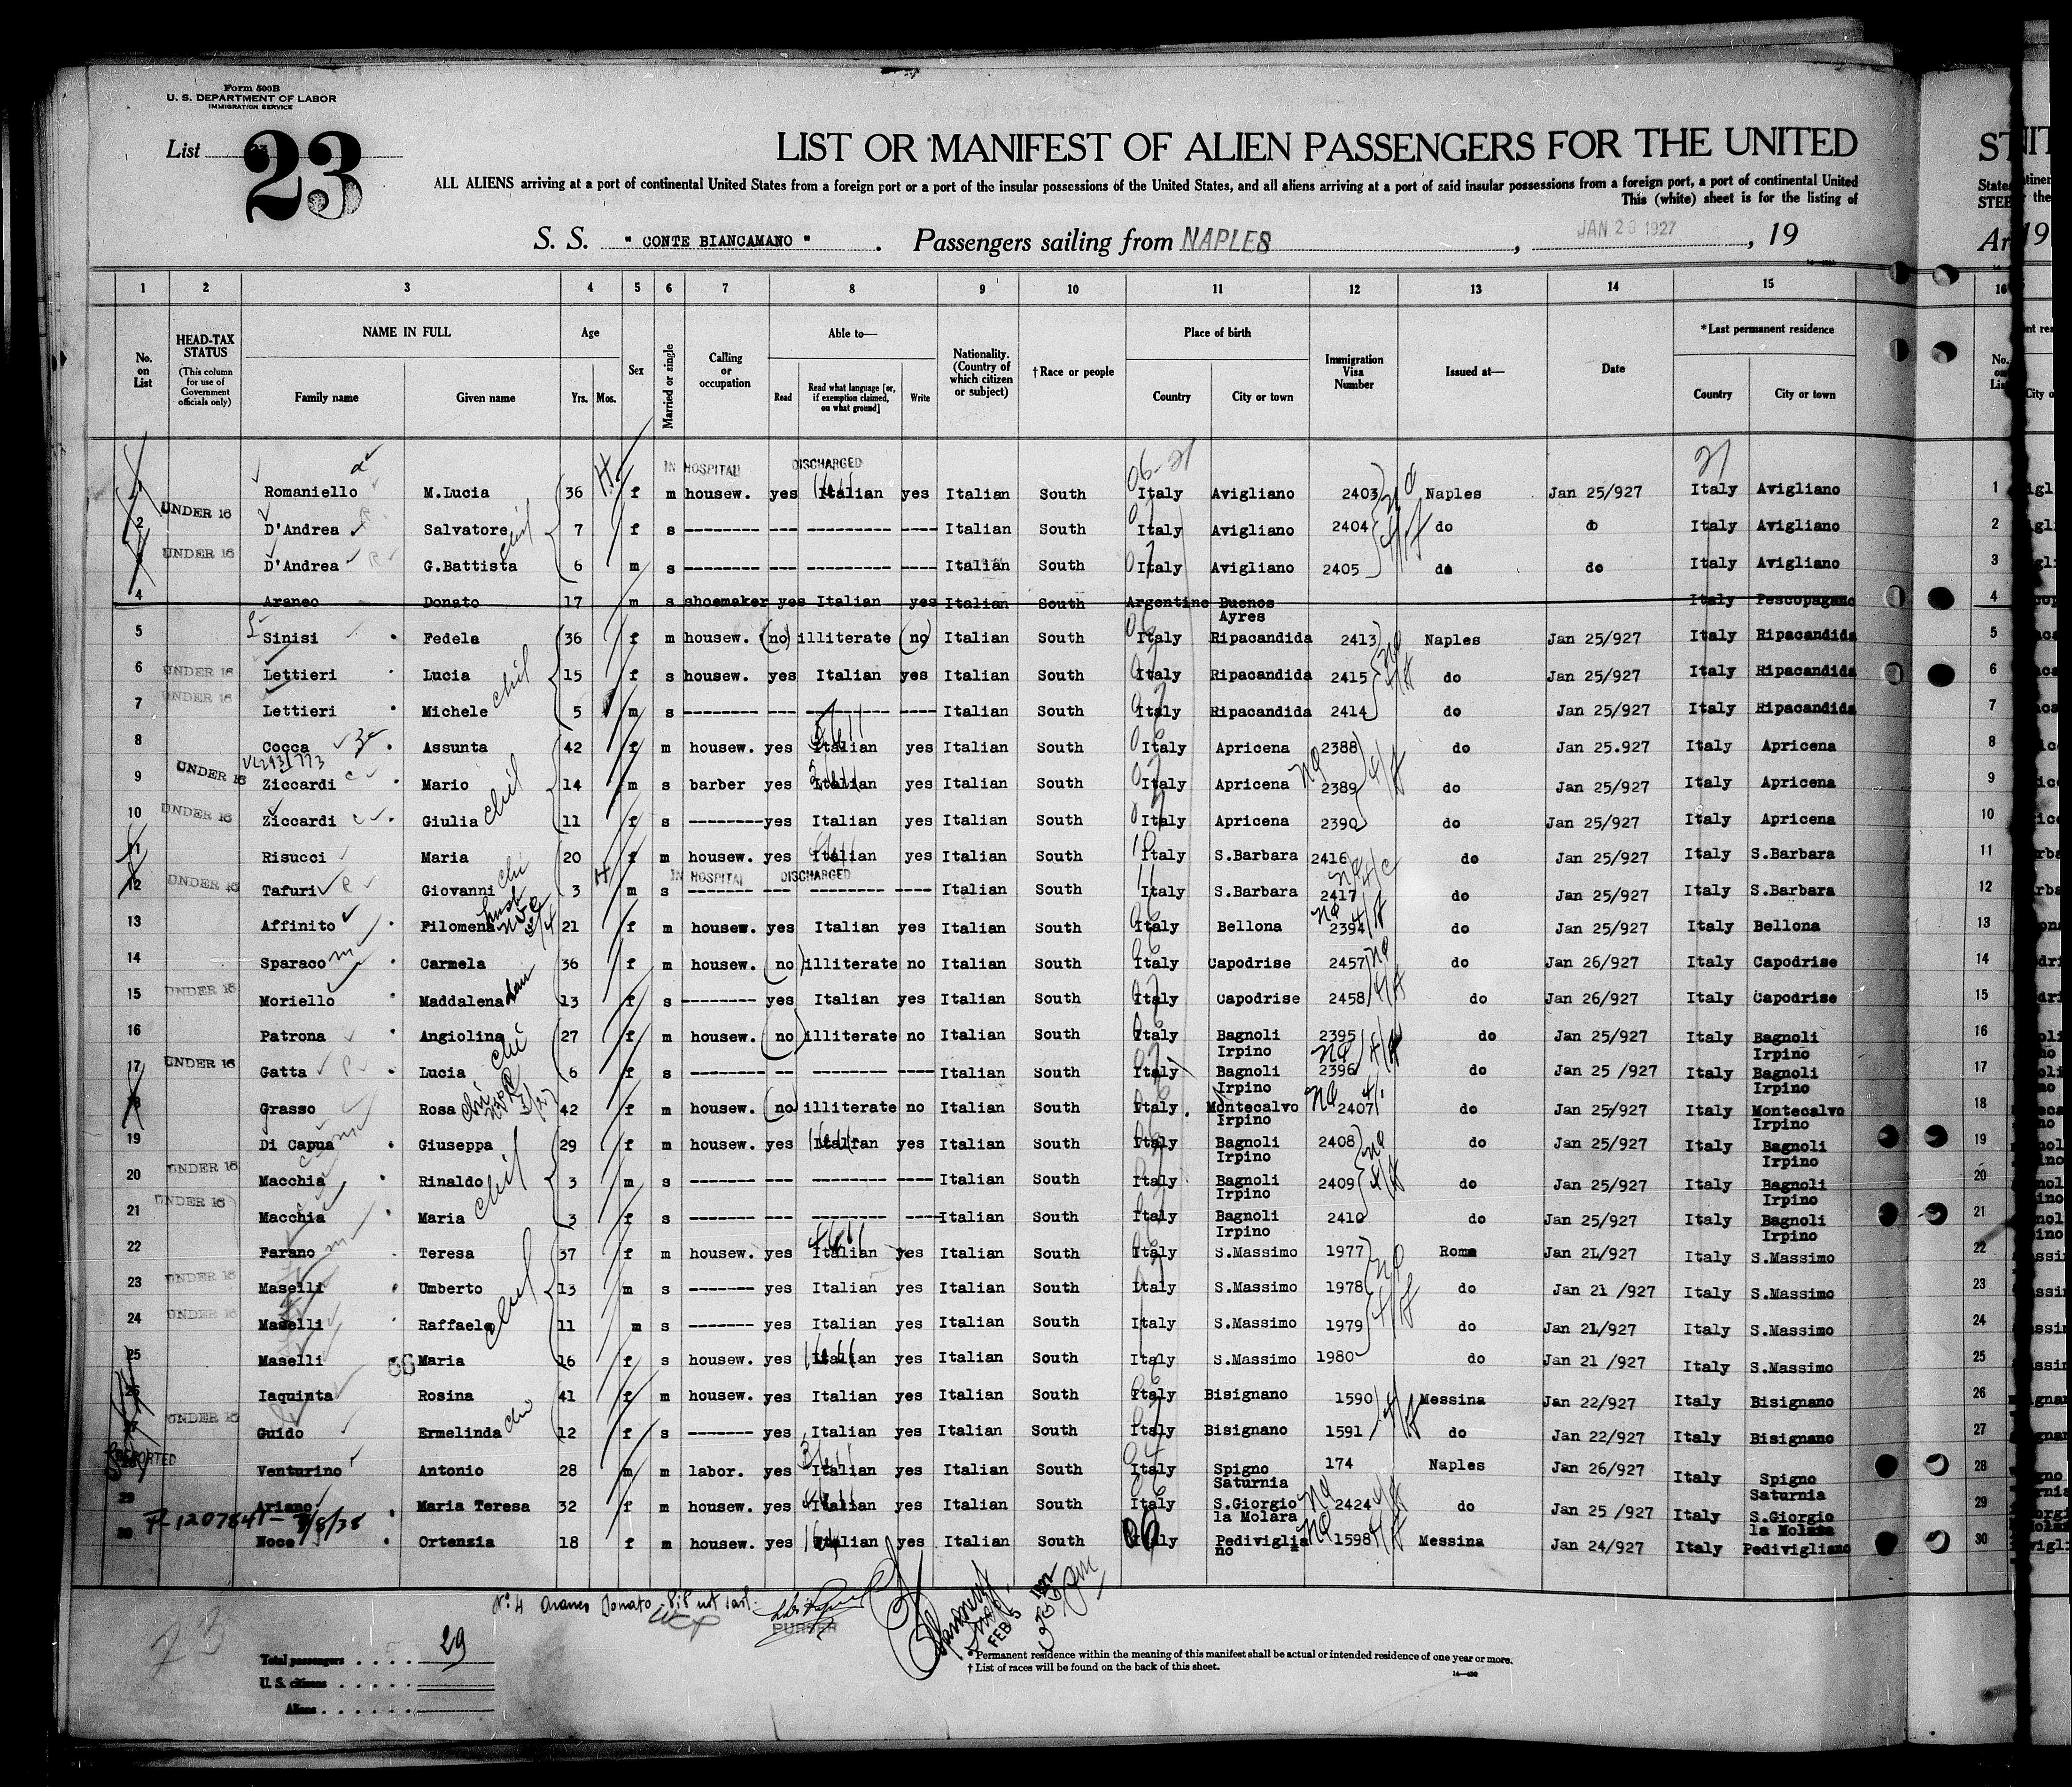 Form 500B
U. S. DEPARTMENT OF LABOR
IMMIGRATION SERVICE
List 23
LIST OR MANIFEST OF ALIEN PASSENGERS FOR THE UNITED
ALL ALIENS arriving at a port of continental United States from a foreign port or a port of the insular possessions of the United States, and all aliens arriving at a port of said insular possessions from a foreign port, a port of continental United
This (white) sheet is for the listing of
S. S. " CONTE BIANCAMANO " . Passengers sailing from NAPLES , JAN 26 1927 , 19
1 2 3 4 5 6 7 8 9 10 11 12 13 14 15
No. on List
HEAD-TAX STATUS (This column for use of Government officials only)
NAME IN FULL
Family name Given name
Age
Yrs. Mos.
Sex
Married or single
Calling or occupation
Able to—
Read Read what language [or, if exemption claimed, on what ground] Write
Nationality. (Country of which citizen or subject)
† Race or people
Place of birth
Country City or town
Immigration Visa Number
Issued at—
Date
*Last permanent residence
Country City or town
IN HOSPITAL DISCHARGED
1 Romaniello M.Lucia 36 f m housew. yes Italian yes Italian South Italy Avigliano 2403 Naples Jan 25/927 Italy Avigliano 1
UNDER 16
2 D'Andrea Salvatore 7 f s Italian South Italy Avigliano 2404 do do Italy Avigliano 2
UNDER 16
3 D'Andrea G.Battista 6 m s Italian South Italy Avigliano 2405 do do Italy Avigliano 3
4 Araneo Donato 17 m s shoemaker yes Italian yes Italian South Argentine Buenos Ayres Italy Pescopagano 4
5 Sinisi Fedela 36 f m housew. (no) illiterate (no) Italian South Italy Ripacandida 2413 Naples Jan 25/927 Italy Ripacandida 5
6 UNDER 16 Lettieri Lucia 15 f s housew. yes Italian yes Italian South Italy Ripacandida 2415 do Jan 25/927 Italy Ripacandida 6
UNDER 16
7 Lettieri Michele 5 m s Italian South Italy Ripacandida 2414 do Jan 25/927 Italy Ripacandida 7
8 Cocca Assunta 42 f m housew. yes Italian yes Italian South Italy Apricena 2388 do Jan 25.927 Italy Apricena 8
9 UNDER 16 Ziccardi Mario 14 m s barber yes Italian yes Italian South Italy Apricena 2389 do Jan 25/927 Italy Apricena 9
10 UNDER 16 Ziccardi Giulia 11 f s yes Italian yes Italian South Italy Apricena 2390 do Jan 25/927 Italy Apricena 10
11 Risucci Maria 20 f m housew. yes Italian yes Italian South Italy S.Barbara 2416 do Jan 25/927 Italy S.Barbara 11
IN HOSPITAL DISCHARGED
12 UNDER 16 Tafuri Giovanni 3 m s Italian South Italy S.Barbara 2417 do Jan 25/927 Italy S.Barbara 12
13 Affinito Filomena 21 f m housew. yes Italian yes Italian South Italy Bellona 2394 do Jan 25/927 Italy Bellona 13
14 Sparaco Carmela 36 f m housew. (no) illiterate no Italian South Italy Capodrise 2457 do Jan 26/927 Italy Capodrise 14
15 UNDER 16 Moriello Maddalena 13 f s yes Italian yes Italian South Italy Capodrise 2458 do Jan 26/927 Italy Capodrise 15
16 Patrona Angiolina 27 f m housew. (no) illiterate no Italian South Italy Bagnoli Irpino 2395 do Jan 25/927 Italy Bagnoli Irpino 16
17 UNDER 16 Gatta Lucia 6 f s Italian South Italy Bagnoli Irpino 2396 do Jan 25 /927 Italy Bagnoli Irpino 17
18 Grasso Rosa 42 f m housew. (no) illiterate no Italian South Italy Montecalvo Irpino 2407 do Jan 25/927 Italy Montecalvo Irpino 18
19 Di Capua Giuseppa 29 f m housew. yes Italian yes Italian South Italy Bagnoli Irpino 2408 do Jan 25/927 Italy Bagnoli Irpino 19
20 UNDER 16 Macchia Rinaldo 3 m s Italian South Italy Bagnoli Irpino 2409 do Jan 25/927 Italy Bagnoli Irpino 20
21 UNDER 16 Macchia Maria 3 f s Italian South Italy Bagnoli Irpino 2410 do Jan 25/927 Italy Bagnoli Irpino 21
22 Farano Teresa 37 f m housew. yes Italian yes Italian South Italy S.Massimo 1977 Roma Jan 21/927 Italy S.Massimo 22
23 UNDER 16 Maselli Umberto 13 m s yes Italian yes Italian South Italy S.Massimo 1978 do Jan 21 /927 Italy S.Massimo 23
24 UNDER 16 Maselli Raffaele 11 m s yes Italian yes Italian South Italy S.Massimo 1979 do Jan 21/927 Italy S.Massimo 24
25 Maselli Maria 16 f s housew. yes Italian yes Italian South Italy S.Massimo 1980 do Jan 21 /927 Italy S.Massimo 25
26 Iaquinta Rosina 41 f m housew. yes Italian yes Italian South Italy Bisignano 1590 Messina Jan 22/927 Italy Bisignano 26
27 UNDER 16 Guido Ermelinda 12 f s yes Italian yes Italian South Italy Bisignano 1591 do Jan 22/927 Italy Bisignano 27
28 Venturino Antonio 28 m m labor. yes Italian yes Italian South Italy Spigno Saturnia 174 Naples Jan 26/927 Italy Spigno Saturnia 28
29 Ariano Maria Teresa 32 f m housew. yes Italian yes Italian South Italy S.Giorgio la Molara 2424 do Jan 25 /927 Italy S.Giorgio la Molara 29
30 Noce Ortenzia 18 f m housew. yes Italian yes Italian South Italy Pedivigliano 1598 Messina Jan 24/927 Italy Pedivigliano 30
No. 4 Araneo Donato did not sail.
PURSER
Total passengers . . . . 29
U. S. citizens . . . . .
Aliens . . . . . .
* Permanent residence within the meaning of this manifest shall be actual or intended residence of one year or more.
† List of races will be found on the back of this sheet.